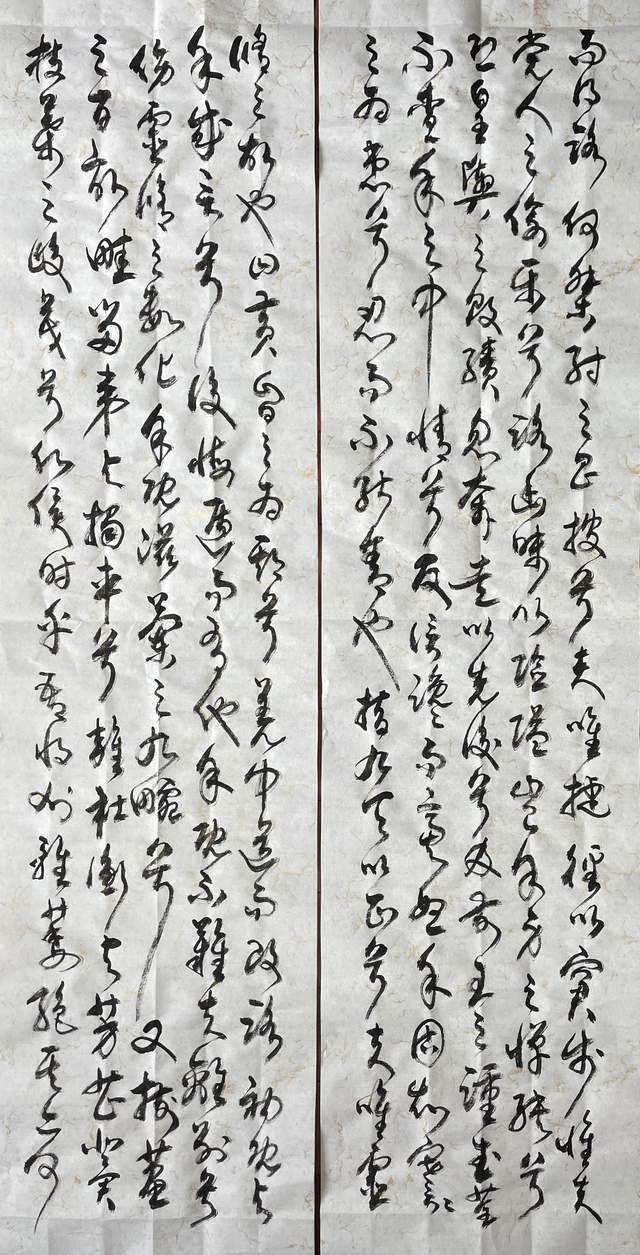 而得路何桀紂之昌披兮夫唯捷徑以窘步惟夫
党人之偷樂兮路幽昧以險隘豈余身之憚殃兮
恐皇輿之敗績忽奔走以先後兮及前王之踵武荃
不查余之中情兮反信讒而齌怒余固知謇謇
之為患兮忍而不能舍也指九天以正兮夫唯靈
脩之故也曰黃昏之為期兮羌中道而改路初既與
余成言兮後悔遁而有他余既不難夫離別兮
傷靈脩之數化余既滋蘭之九畹兮又樹蕙
之百畝畦留夷與揭車兮雜杜衡與芳芷冀
枝葉之峻茂兮願俟時乎吾將刈雖萎絕其亦何